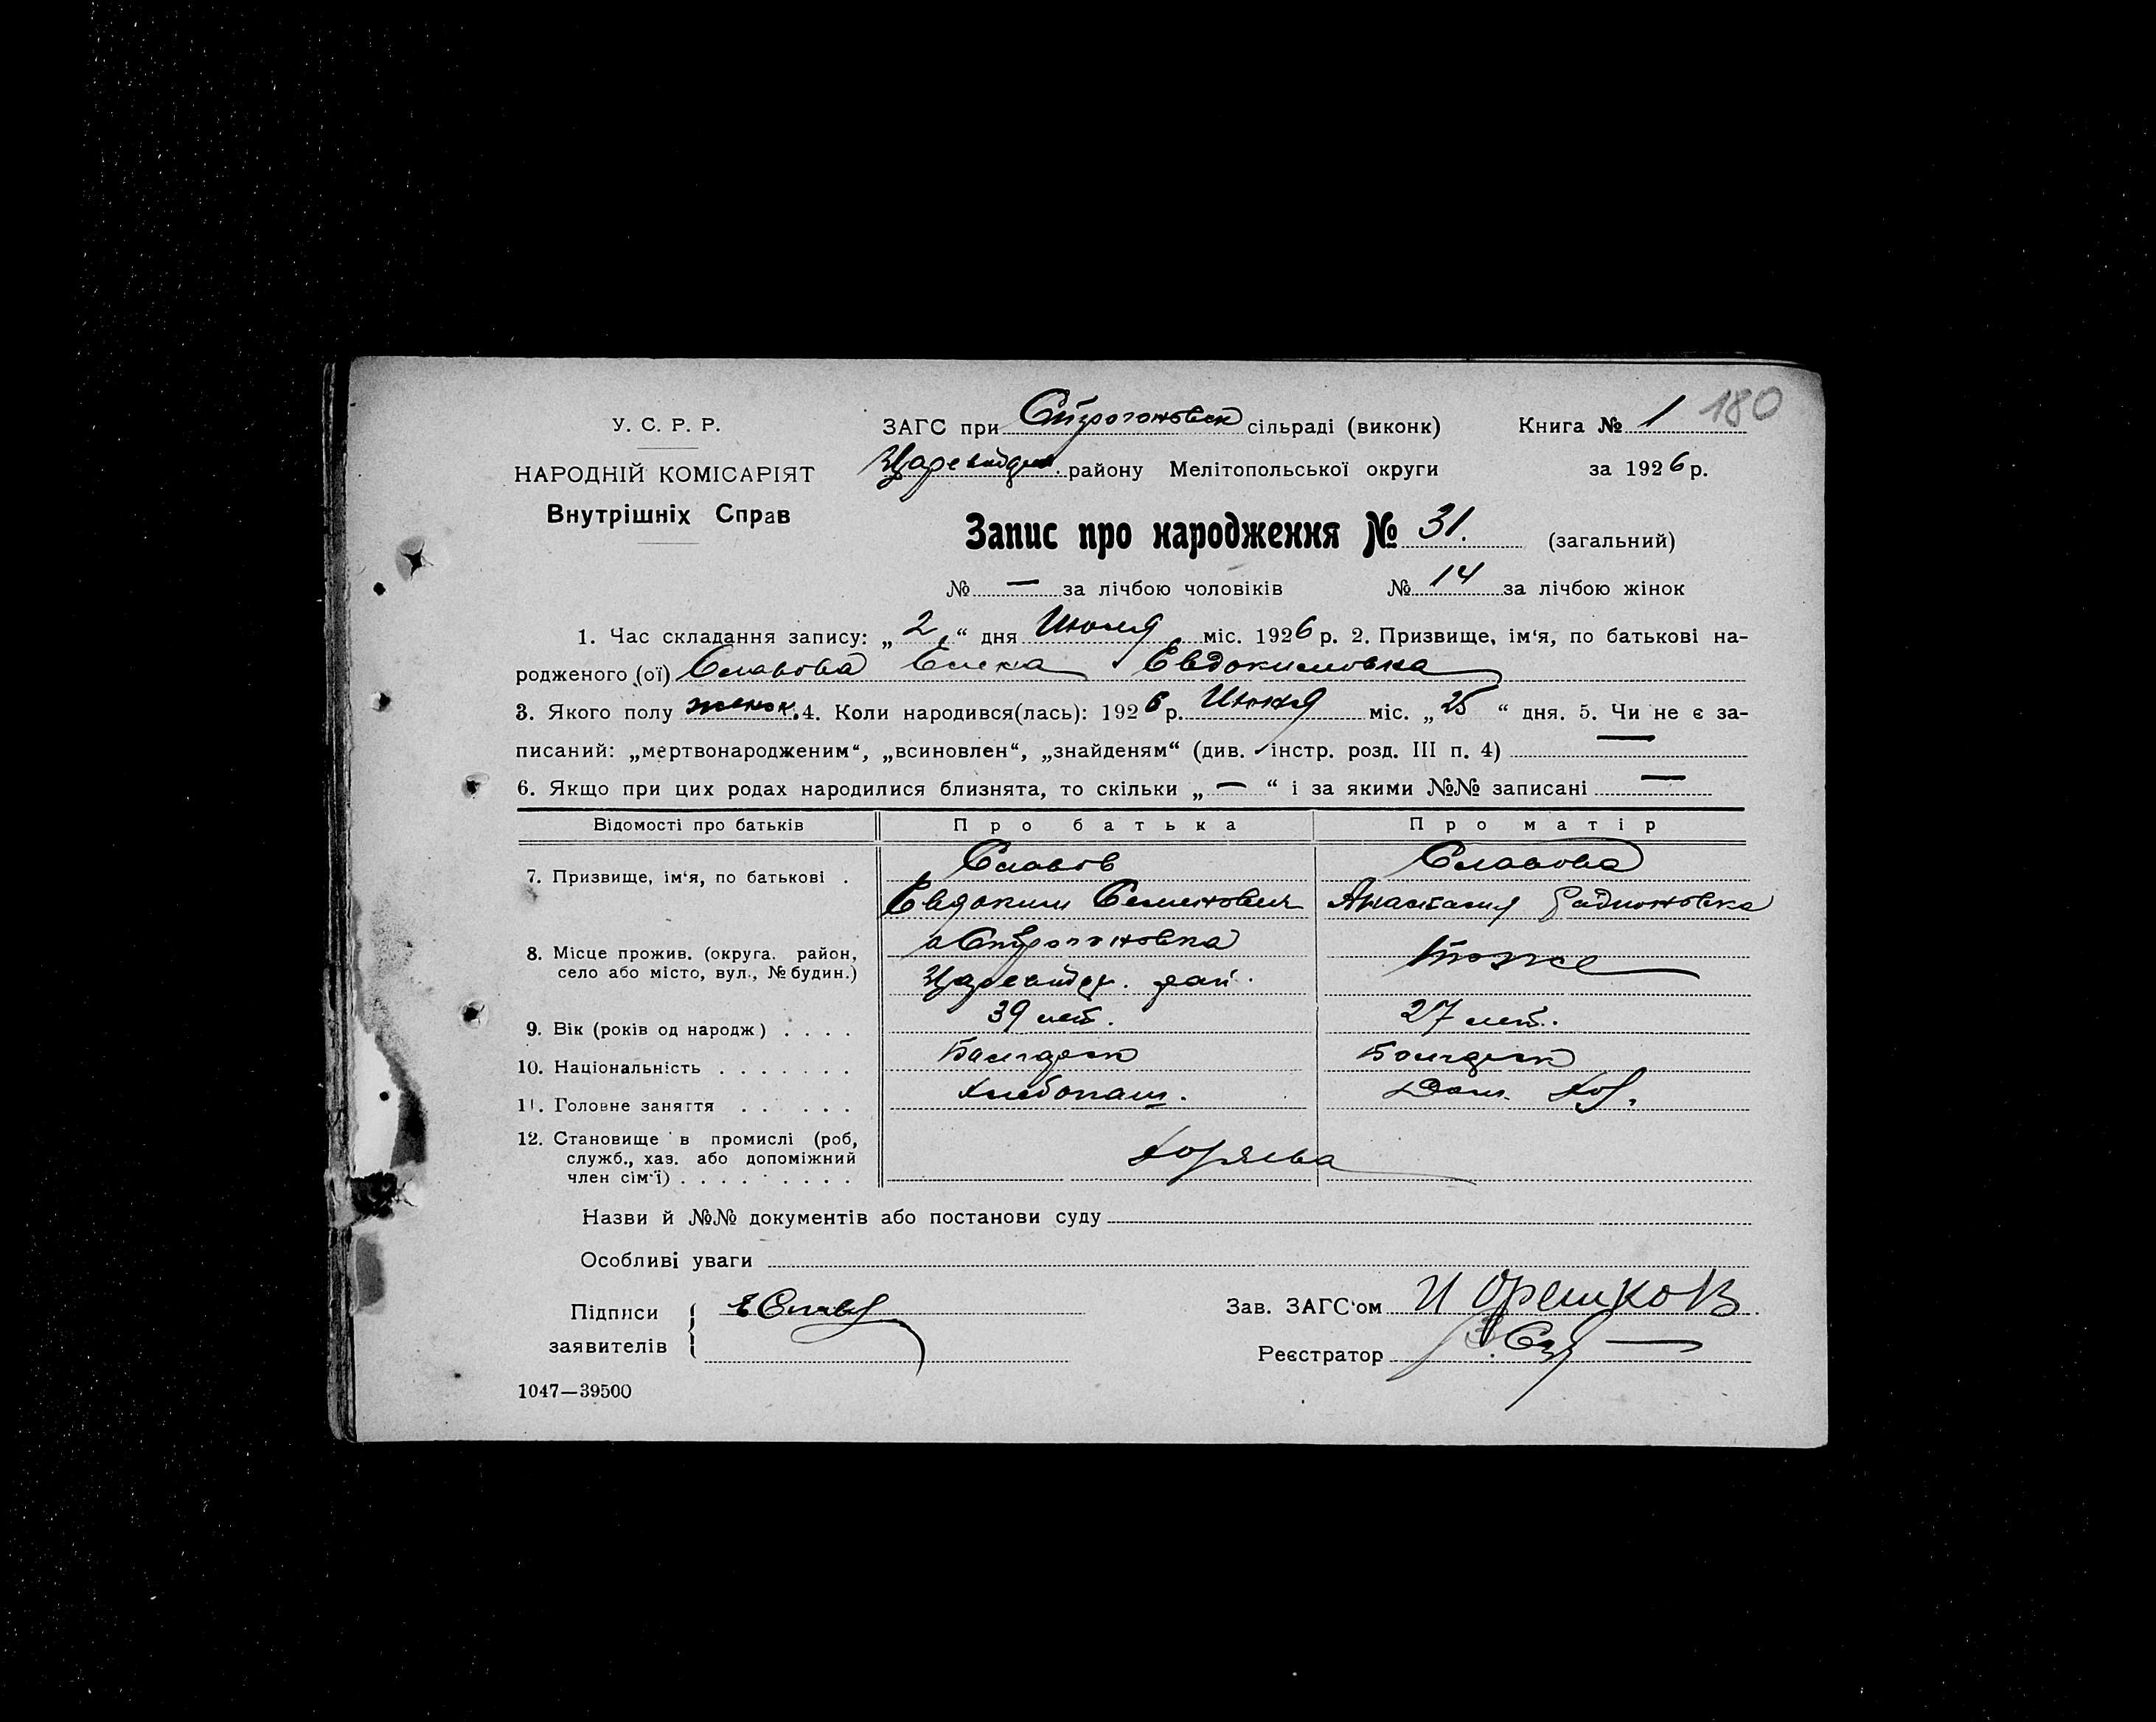 180
У. С. Р. Р.
НАРОДНІЙ КОМІСАРІЯТ
Внутрішніх Справ
ЗАГС при Строгоновск сільраді (виконк) Книга № 1
району Мелітопольської округи за 1926 р.
Запис про народження № 31. (загальний)
№ — за лічбою чоловіків № 14 за лічбою жінок
1. Час складання запису: „2“ дня Июля міс. 1926 р. 2. Призвище, ім‘я, по батькові на-
родженого (ої) Славова Елена Евдокимовна
3. Якого полу женск. 4. Коли народився(лась): 1926 р. Июня міс. „25“ дня. 5. Чи не є за-
писаний: „мертвонародженим“, „всиновлен“, „знайденям“ (див. інстр. розд. III п. 4) —
6. Якщо при цих родах народилися близнята, то скільки „—“ і за якими №№ записані —
Відомості про батьків Про батька Про матір
7. Призвище, ім‘я, по батькові . Славов Славова
Евдоким Семенович Анастасия Радионовна
8. Місце прожив. (округа. район, село або місто, вул., № будин.) Строгоновка тоже
рай.
9. Вік (років од народж) . . . . 39 лет. 27 лет.
10. Національність . . . . . . . Болгарск Болгарск
11. Головне заняття . . . . . Хлебопаш. Дом. Хоз.
12. Становище в промислі (роб, служб., хаз. або допоміжний член сім‘ї) . . . . . . . . . Хозяева
Назви й №№ документів або постанови суду
Особливі уваги
Підписи заявителів { Е Славов
Зав. ЗАГС‘ом И Орешков
Реєстратор
1047—39500